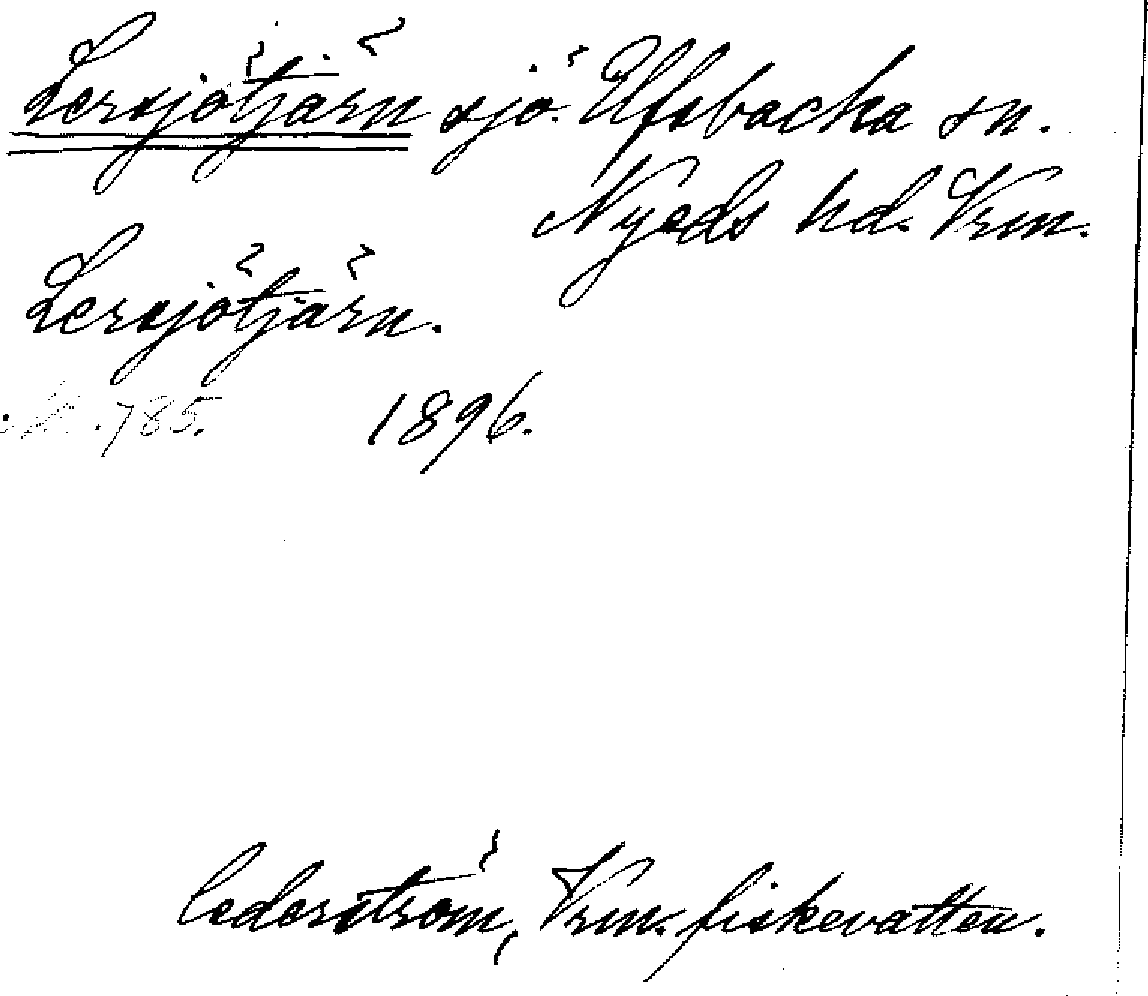 Lersjötjärn sjö. Elfsbacka sn.
Nyeds hd. Vrm.
Lersjötjärn.
785. 1896.
Cederström, Vrm. fiskevatten.